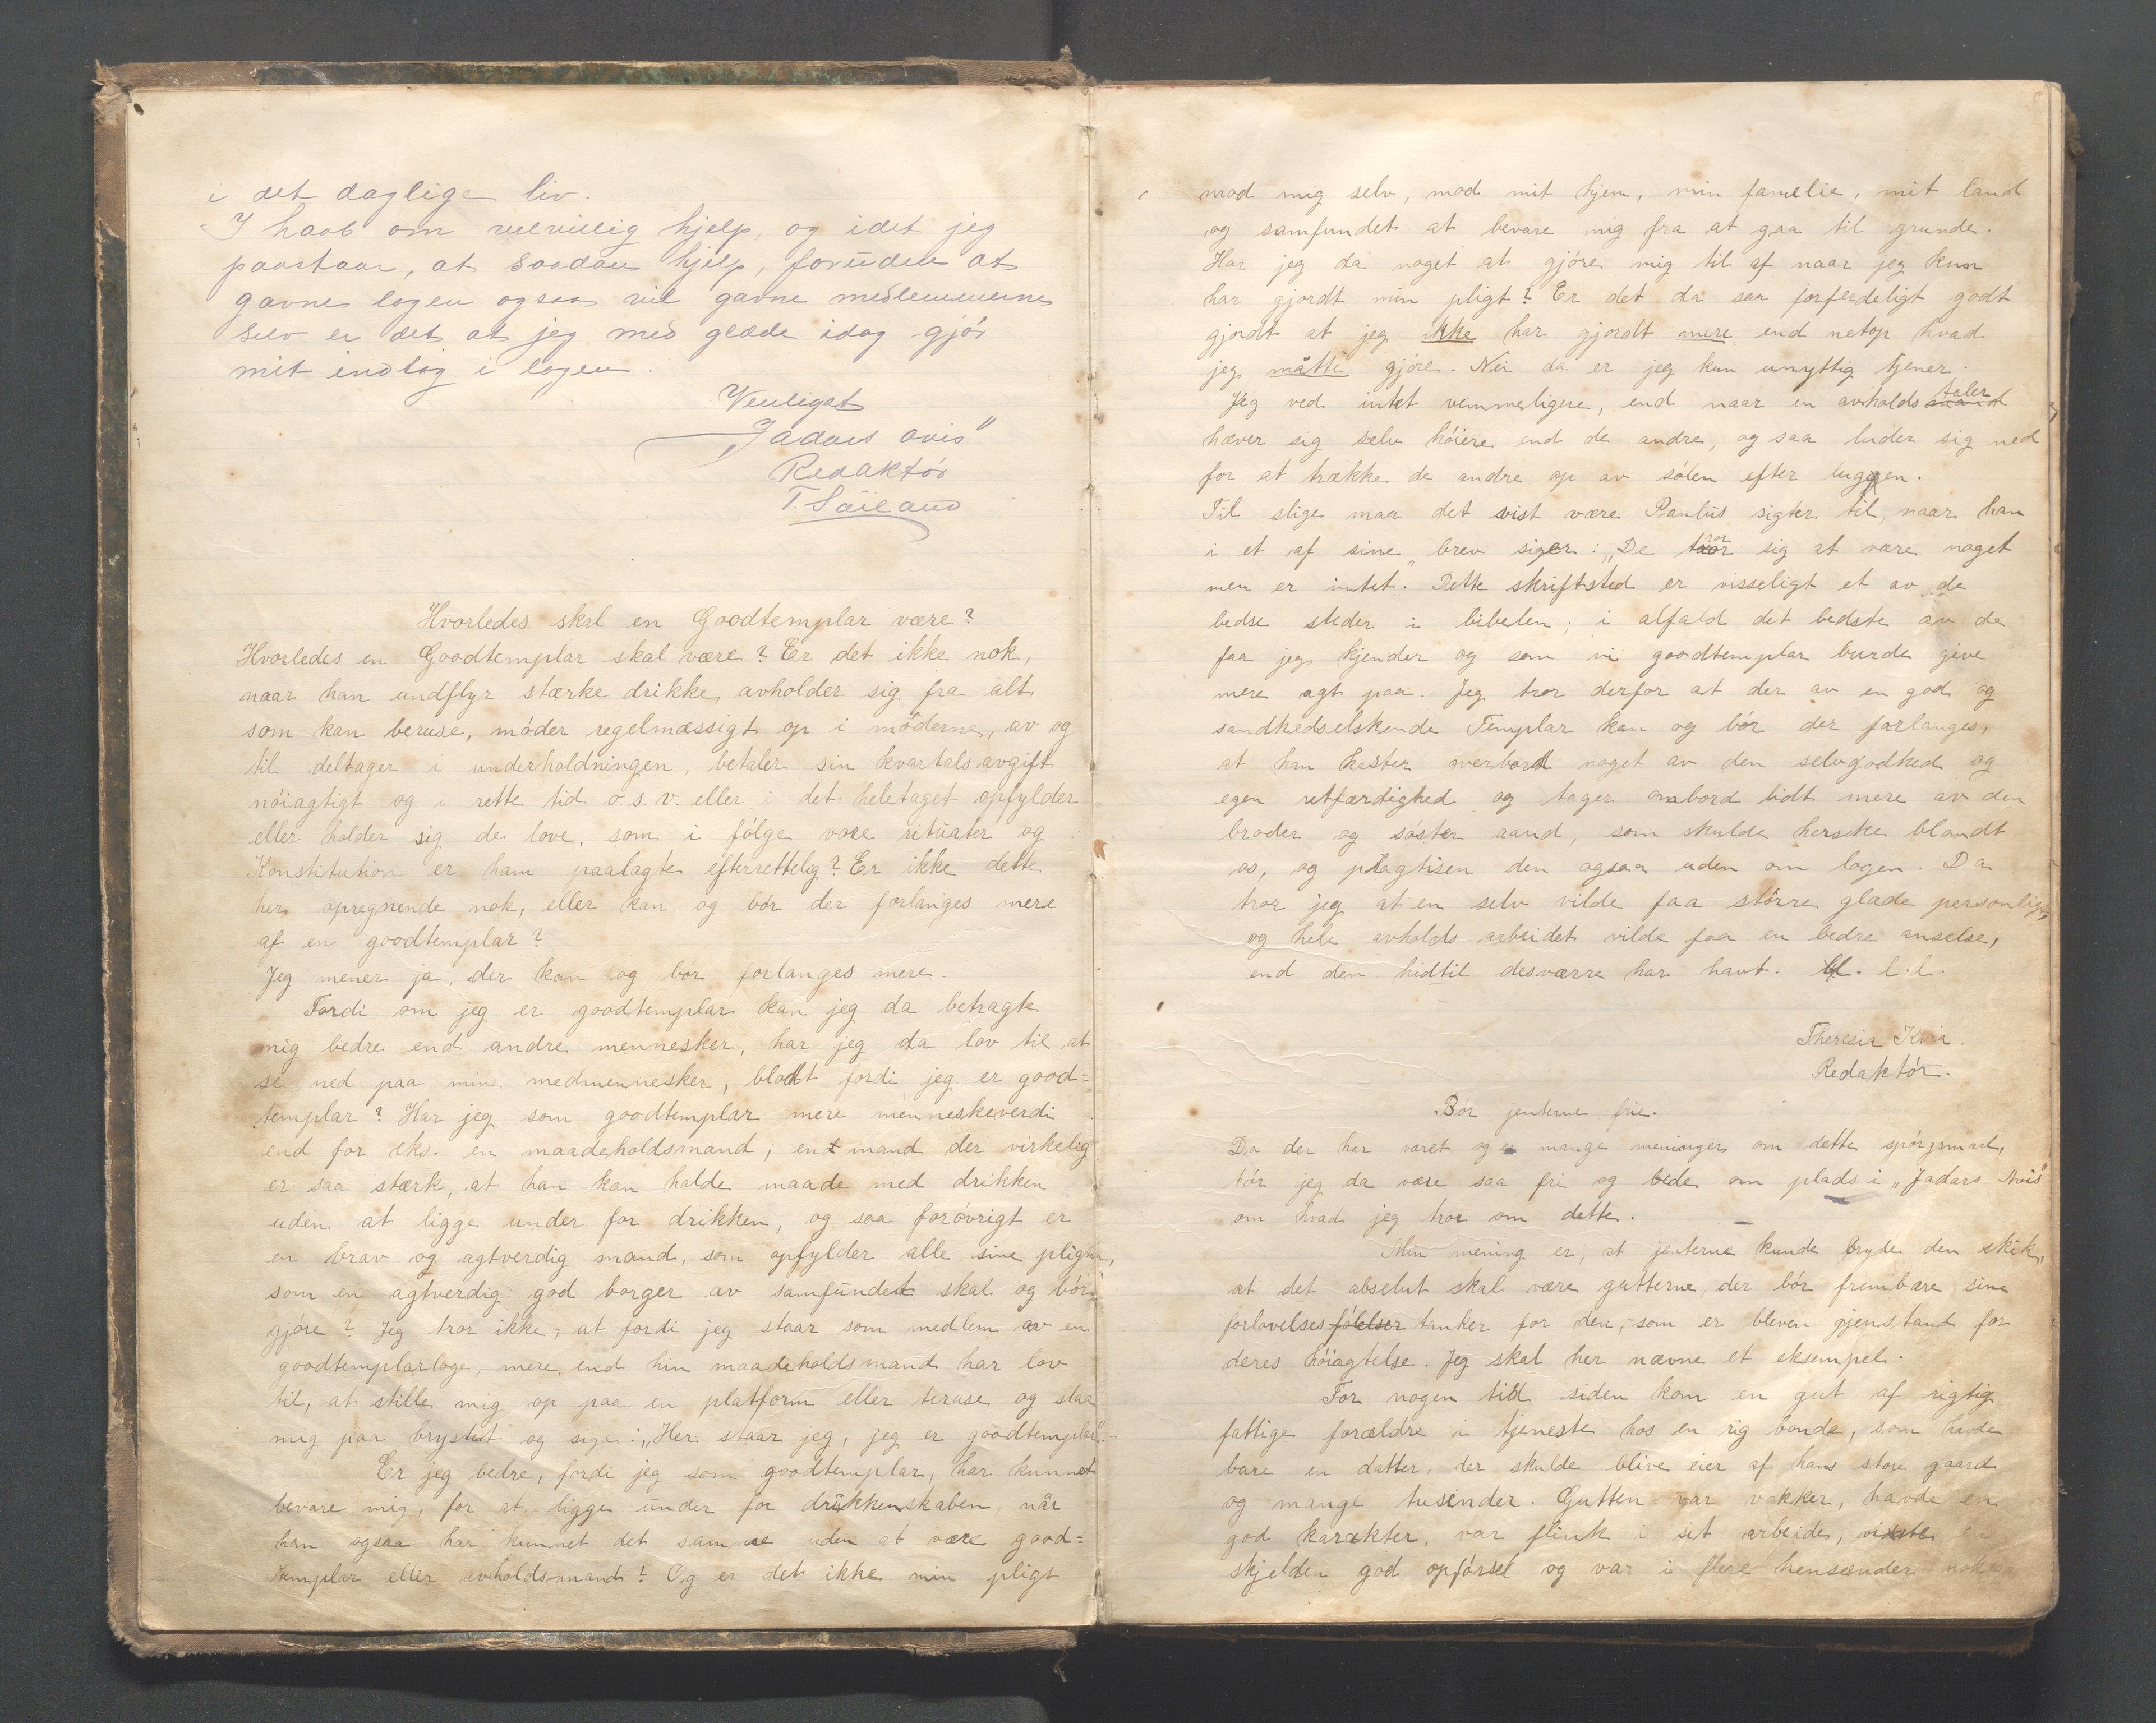 i det daglige liv.
I haab om velvillig hjelp, og idet jeg
paastaar, at saadan hjelp, foruden at
gavne logen ogsaa vil gavne medlemmerne
selv er det at jeg med glæde idag gjör
mit indlæg i logen.
Venligst
"Jadars avis"
Redaktör
T. Säiland
Hvorledes skal en Goodtemplar være?
Hvorledes en Goodtemplar skal være? Er det ikke nok,
naar han undflyr stærke drikke, avholder sig fra alt
som kan beruse, möder regelmæssigt op i möderne, av og
til deltager i underholdningen, betaler sin kvartalsavgift
nöiagtigt og i rette tid o.s.v. eller i det heletaget opfylder
eller holder sig de love, som i fölge vore ritualer og
Konstitution er ham paalagte efterrettelig? Er ikke dette
her opregnende nok, eller kan og bör der forlanges mere
af en goodtemplar?
Jeg mener ja, der kan og bör forlanges mere.
Fordi om jeg er goodtemplar kan jeg da betragte
mig bedre end andre mennesker, har jeg da lov til at
se ned paa mine medmennesker, blodt fordi jeg er good=
templar? Har jeg som goodtemplar mere menneskeverdi
end for eks. en maadeholdsmand; en mand der virkelig
er saa stærk, at han kan holde maade med drikken
uden at ligge under for drikken, og saa forövrigt er
en brav og agtverdig mand, som opfylder alle sine pligter,
som en agtverdig god borger av samfundet skal og bör
gjöre? Jeg tror ikke, at fordi jeg staar som medlem av en
goodtemplarloge, mere end hin maadeholdsmand har lov
til, at stille mig op paa en platform eller terase og slaa
mig paa brystet og sige: "Her staar jeg, jeg er goodtemplar".
Er jeg bedre, fordi jeg som goodtemplar, har kunnet
bevare mig, for at ligge under for drikkenskaben, når
han ogsaa har kunnet det samme uden at være good=
templar eller avholdsmand? Og er det ikke min pligt
mod mig selv, mod mit hjem, min familie, mit land
og samfundet at bevare mig fra at gaa til grunde.
Har jeg da noget at gjöre mig til af naar jeg kun
har gjordt min pligt? Er det da saa forferdeligt godt
gjordt at jeg ikke har gjordt mere end netop hvad
jeg måtte gjöre. Nei da er jeg kun unyttig tjener.
Jeg ved intet vemmeligere, end naar en avholds mand taler
hæver sig selv höiere end de andre, og saa luder sig ned
for at trække de andre op av sölen efter luggen.
Til slige maa det vist være Paulus sigter til, naar han
i et af sine brev siger: "De tror sig at være noget
men er intet." Dette skriftsted er visseligt et av de
bedse steder i bibelen; i alfald det bedste av de
faa jeg kjender og som vi goodtemplar burde give
mere agt paa. Jeg tror derfor at der av en god og
sandhedselskende Templar kan og bör der forlanges,
at han kaster overbord noget av den selvgodhed og
egen retfærdighed og tager ombord lidt mere av den
broder og söster aand, som skulde herske blandt
os, og pragtisen den ogsaa uden om logen. Da
tror jeg at en selv vilde faa större glæde personligt,
og hele avholds arbeidet vilde faa en bedre anselse,
end den hidtil desværre har havt. l.l.
Theresia Kvia.
Redaktör.
Bör jenterne frie.
Da der har været og er mange meninger om dette spörgsmaal,
tör jeg da være saa fri og bede om plads i "Jadars Avis"
om hvad jeg tror om dette.
Min mening er, at jenterne kunde bryde den skik,
at det absolut skal være gutterne, der bör frembære sine
forlovelses fölelser tanker for den, som er bleven gjenstand for
deres höiagtelse. Jeg skal her nævne et eksempel.
For nogen tid siden kom en gut af rigtig
fattige forældre i tjeneste hos en rig bonde, som havde
bare en datter, der skulde blive eier af hans store gaard
og mange tusinder. Gutten var vakker, havde en
god karakter, var flink i sit arbeide, viste en
skjelden god opförsel og var i flere hensænder nok